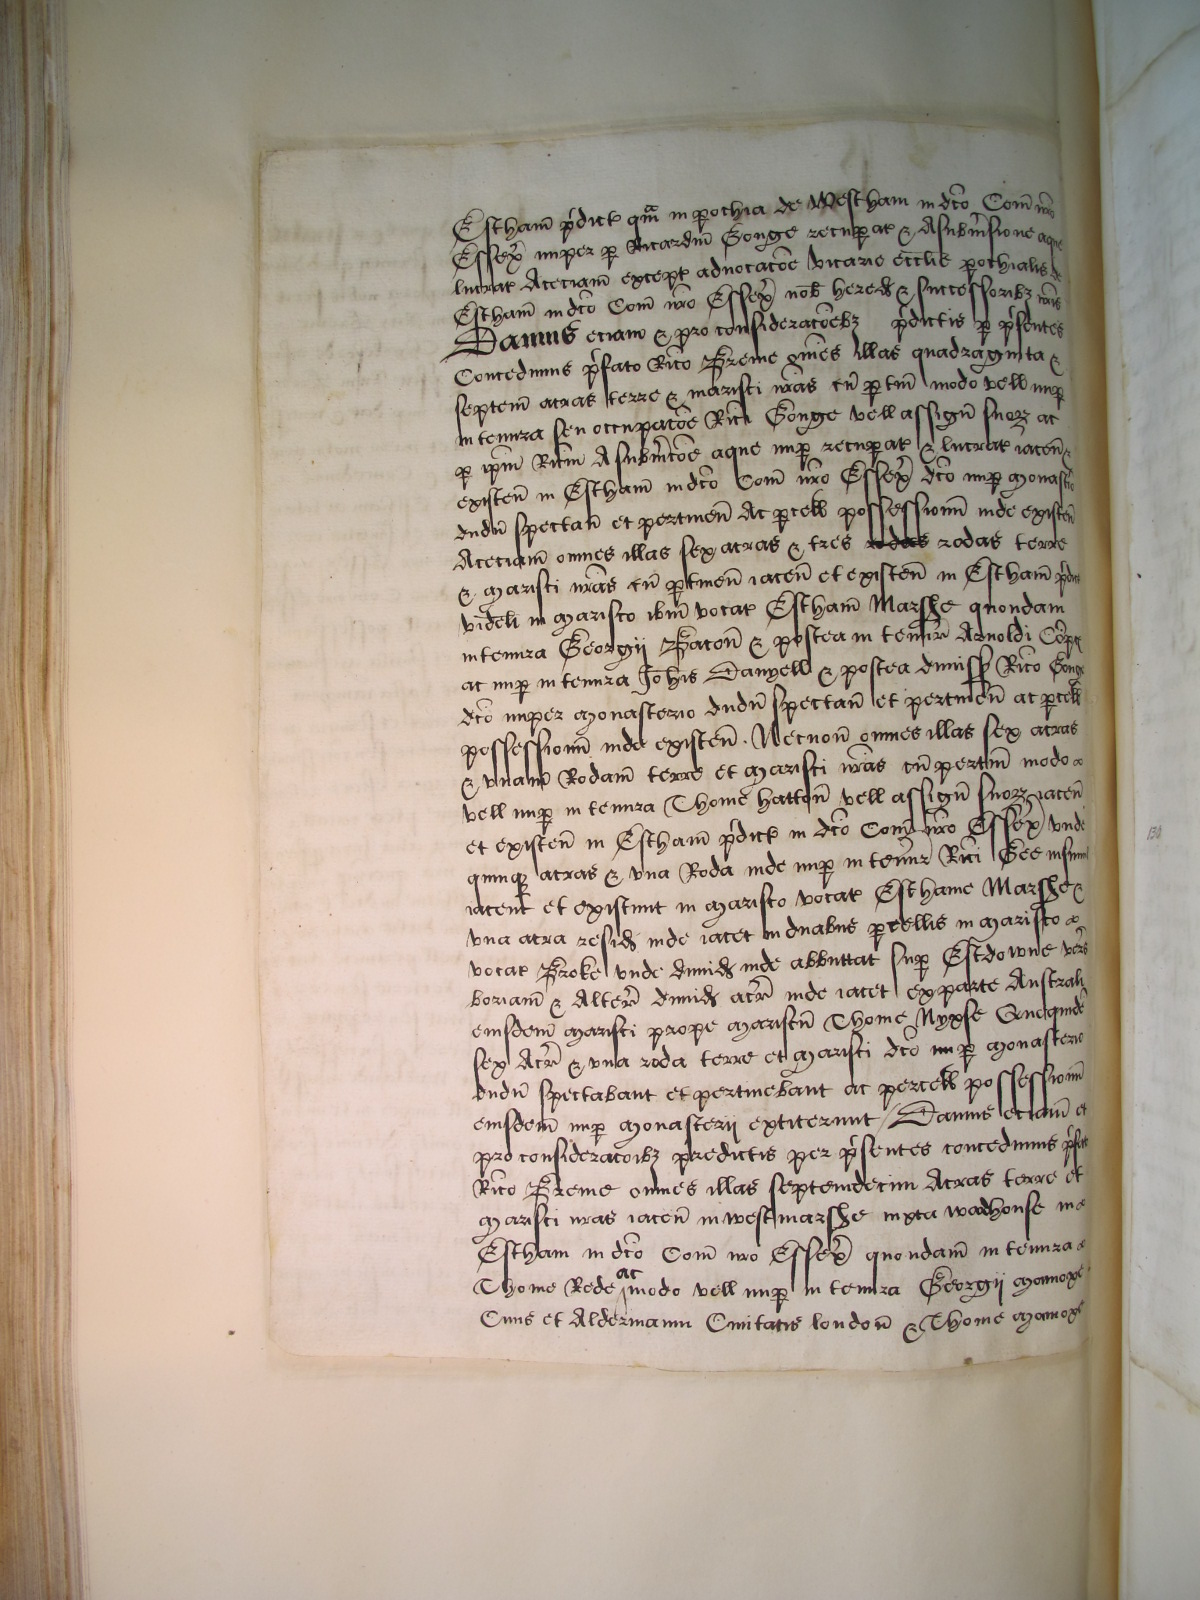 Estham p'dict qm̃ in pochia de Westham in dc̃o Com̃ nr̃o
Essex̃ nuper p Ricardũ Gonge recuperat & A subm̃sione aque
lucrat Aceciam except advocacõe vicarie ecclie pochialis de
Esthañ in dc̃o Com̃ nr̃o Essex̃ nob̃ hered & successoribz nr̃is
Damus eciam & pro consideracõebz p'dictis p p'sentes
Concedimus p'fato Rico Breme om̃es illas quadraginta &
septem acras terre & marisci nr̃as cũ ptiñ modo vell nup
in tenura seu occupacõe Rici Gonge vell assigñ suorz ac
p ip̃m Ric̃m A subm̃cõe aque nup recuperat & lucrat iaceñ &
existeñ in Esthañ in dc̃o Com̃ nr̃o Essex̃ dc̃o nup monastio
dudũ spectañ et pertineñ Ac pcell possessionũ inde existeñ
Aceciam om̃es illas sex acras & tres rodas rodas terre
& marisci nr̃as cũ ptineñ iaceñ et existeñ in Esthañ p'dict
videli in marisco ib̃m vocat Esthañ Marshe quondam
in tenura Georgij Bacoñ & postea in tenur̃ Arnoldi
ac nup in tenura Joh̃is Danyell & postea dimiss Rico Gonge
dc̃o nuper monasterio dudũ spectañ et pertineñ ac pcell
possessionũ inde existeñ. Necnoñ om̃es illas sex acras
& unam Rodam terre et marisci nr̃as cũ pertiñ modo
vell nup in tenura Thome hattoñ vell assigñ suorz iaceñ
et existeñ in Esthañ p'dict in dc̃o Com̃ nr̃o Essex̃ unde
quinqz acras & una Roda inde nup in tenur̃ Rici Gee insimul
iacent et existunt in marisco vocat Esthame Marshe &
una acra resid inde iacet in duabus pcellis in marisco
vocat Broke unde dimid inde abbuttat sup Estdowne vers
boriam & Alter̃ dimid acr̃ inde iacet ex parte Australi
eiusdem marisci prope mariscũ Thome Nyxse Quequidẽ
sex Acr̃ & una roda terre et marisci dc̃o nup monasterio
dudũ spectabant et pertinebant ac percell possessionũ
eiusdem nup monasterij extiterunt / Damus eciam et
pro consideracoibz predictis per p'sentes concedimus p'fato
Rico Breme omnes illas septemdecim Acras terre et
marisci nras iaceñ in westmarshe iuxta wadhouse in
Estham in dc̃o Com nro Essex̃ quondam in tenura
Thome Rede ac modo vell nup in tenura Georgij monoxe
Civis et Aldermanni Civitatis londoñ & Thome monoxe
130